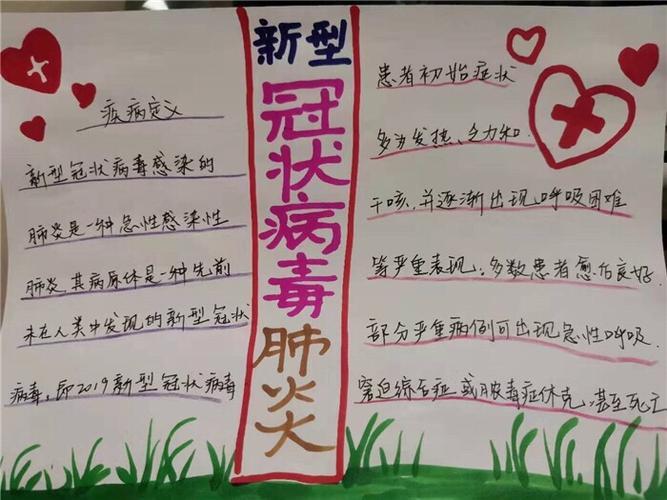 疾病定义
新型冠状病毒感染的
肺炎是一种急性感染性
肺炎,其病原体是一种先前
未在人类中发现的新型冠状
病毒,即2019新型冠状病毒
新型
冠状病毒
肺炎
患者初始症状
多为发热、乏力和
干咳,并逐渐出现呼吸困难
等严重表现。多数患者愈后良好,
部分严重病例可出现急性呼吸
窘迫综合征或脓毒症休克,甚至死亡